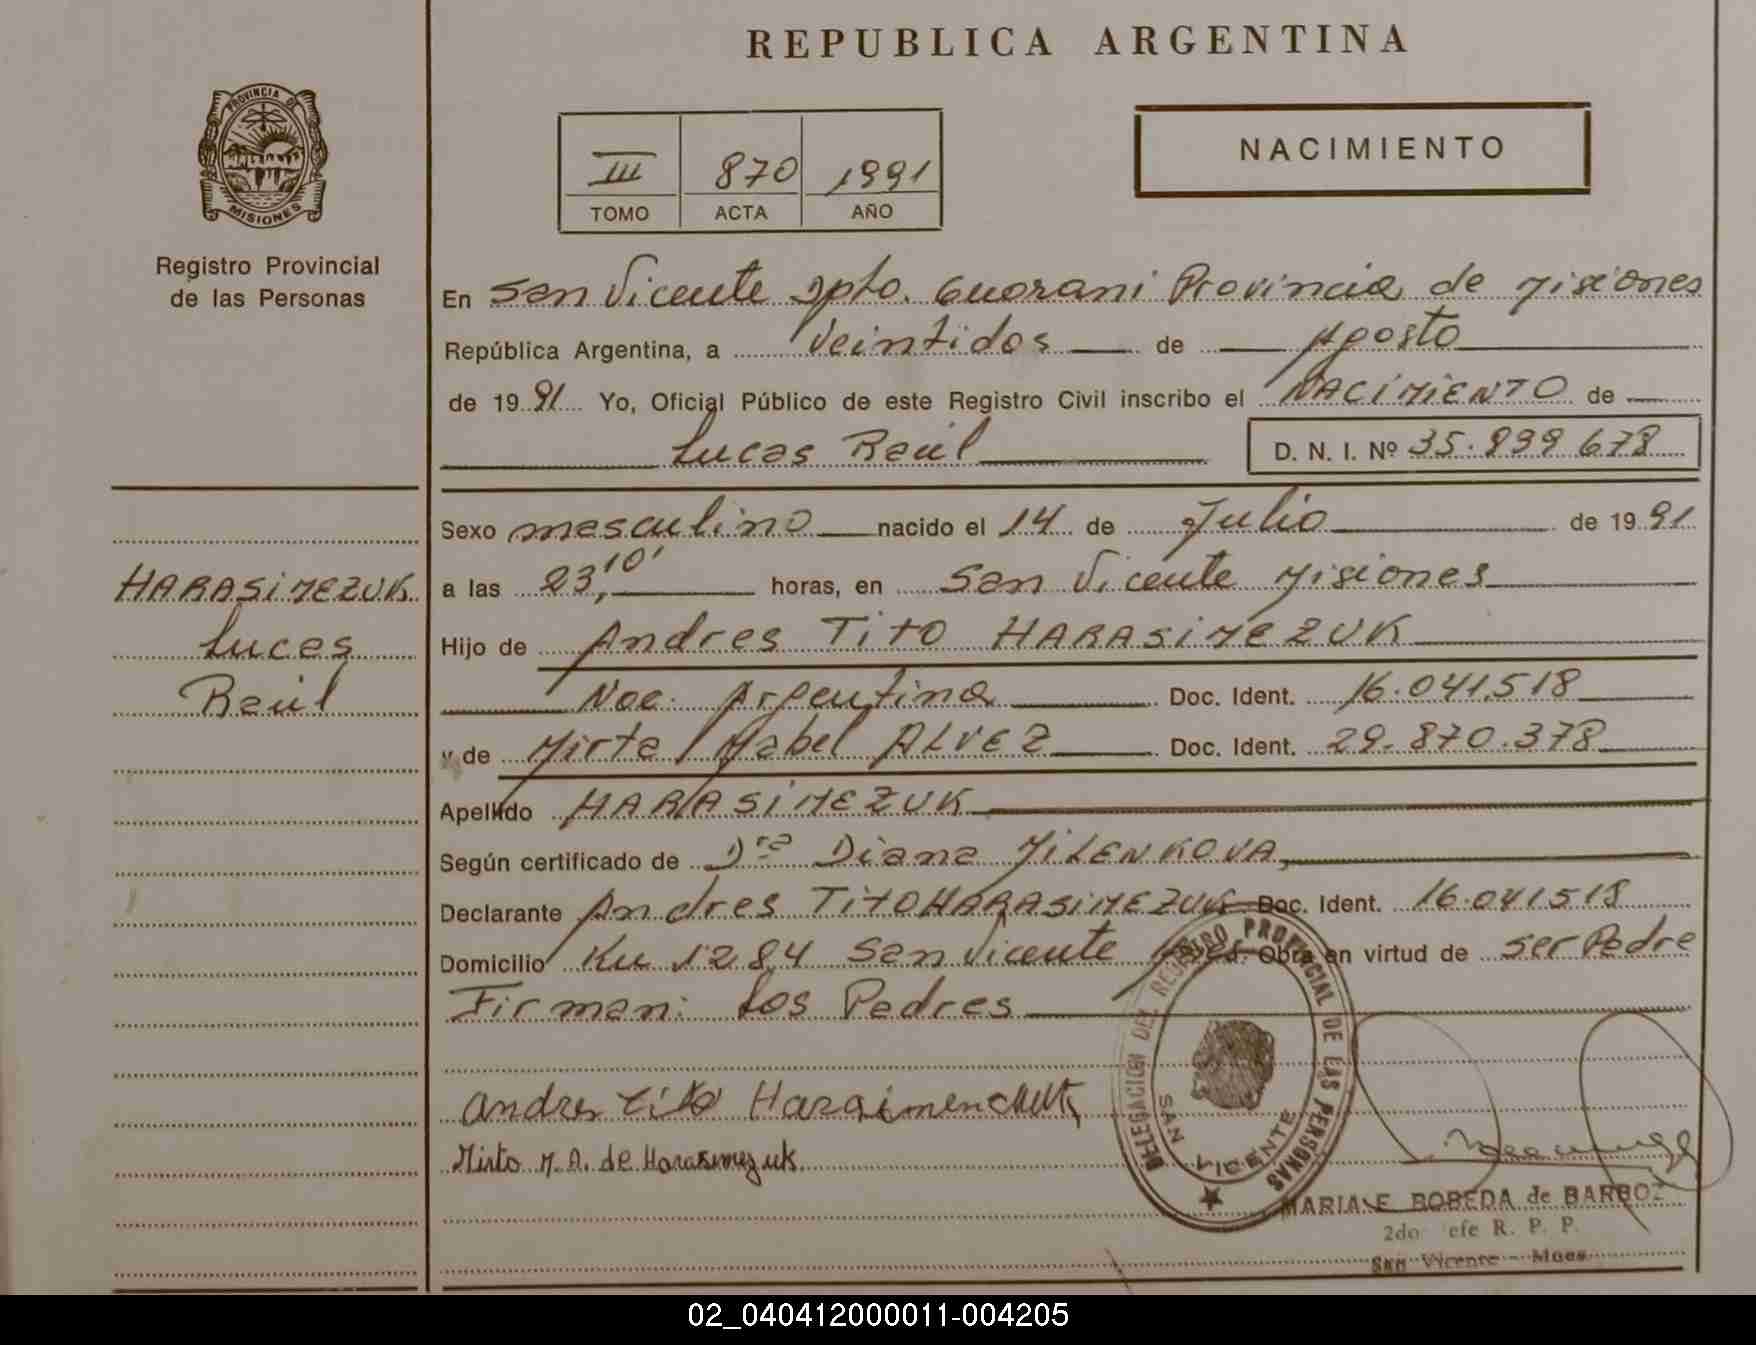 REPUBLICA ARGENTINA
PROVINCIA DE
MISIONES
Registro Provincial
de las Personas
III 870 1991
TOMO ACTA AÑO
NACIMIENTO
En San Vicente Dpto. Guarani Provincia de Misiones
República Argentina, a Veintidos de Agosto
de 1991 Yo, Oficial Público de este Registro Civil inscribo el NACIMIENTO de
Lucas Raúl D. N. I. Nº 35.899678
Sexo masculino nacido el 14 de Julio de 1991
HARASIMEZUK
Lucas
Raúl
a las 23,10' horas, en San Vicente Misiones
Hijo de Andres Tito HARASIMEZUK
Nac. Argentina Doc. Ident. 16.041.518
y de Mirta Mabel ALVEZ Doc. Ident. 29.870.378
Apellido HARASIMEZUK
Según certificado de Dra Diana MILENKOVA,
Declarante Andres Tito HARASIMEZUK Doc. Ident. 16.041518
Domicilio Km 1284 San Vicente Obra en virtud de ser Padre
Firman: Los Padres
andres tito
Mirta M. A. de Harasimezuk
DELEGACION DEL REGISTRO PROVINCIAL DE LAS PERSONAS
SAN VICENTE
MARIA E BOBEDA de BARBOZ
2do efe R. P. P.
San Vicente - Mnes
02_040412000011-004205